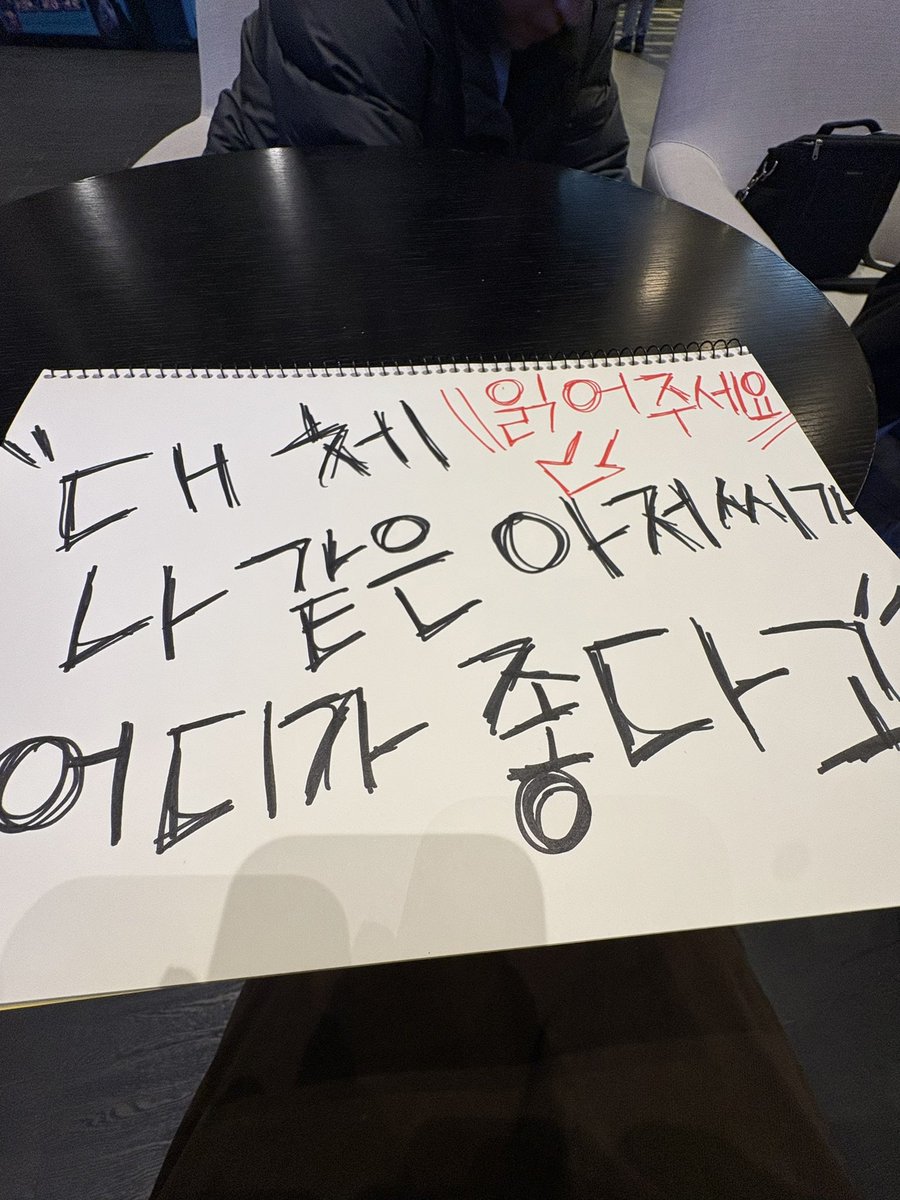 \\읽어주세요//
"대체
나 같은 아저씨가
어디가 좋다고"